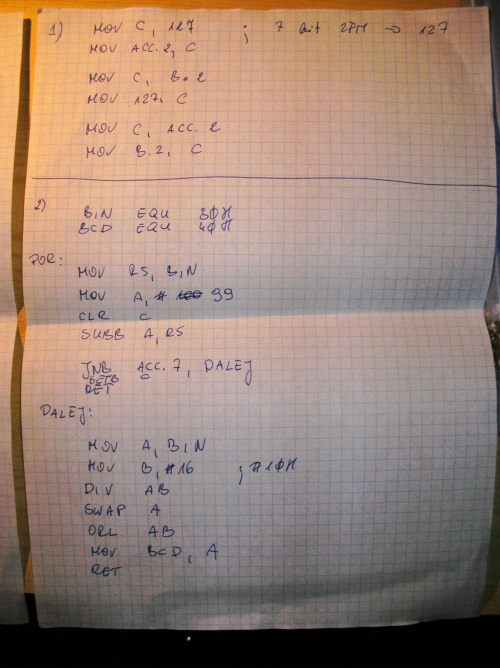 1) MOV C, 127 ; 7 bit 2FH → 127
MOV ACC.2, C
MOV C, B.2
MOV 127, C
MOV C, ACC.2
MOV B.2, C
2)
BIN EQU 30H
BCD EQU 40H
POR:
MOV R5, BIN
MOV A, # 99
CLR C
SUBB A, R5
JNB ACC.7, DALEJ
SETB C
RET
DALEJ:
MOV A, BIN
MOV B, #16 ; #10H
DIV AB
SWAP A
ORL AB
MOV BCD, A
RET